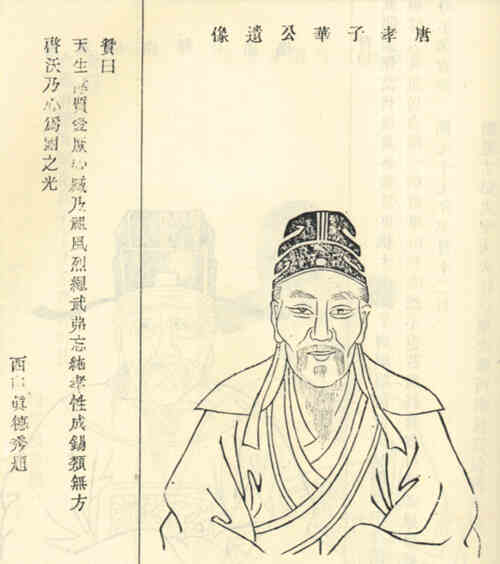 唐孝子華公遺像
贊曰
天生質厥心乃風烈繩武弗忘純孝性成錫類無方
啓沃乃心爲國之光
西山眞德秀題